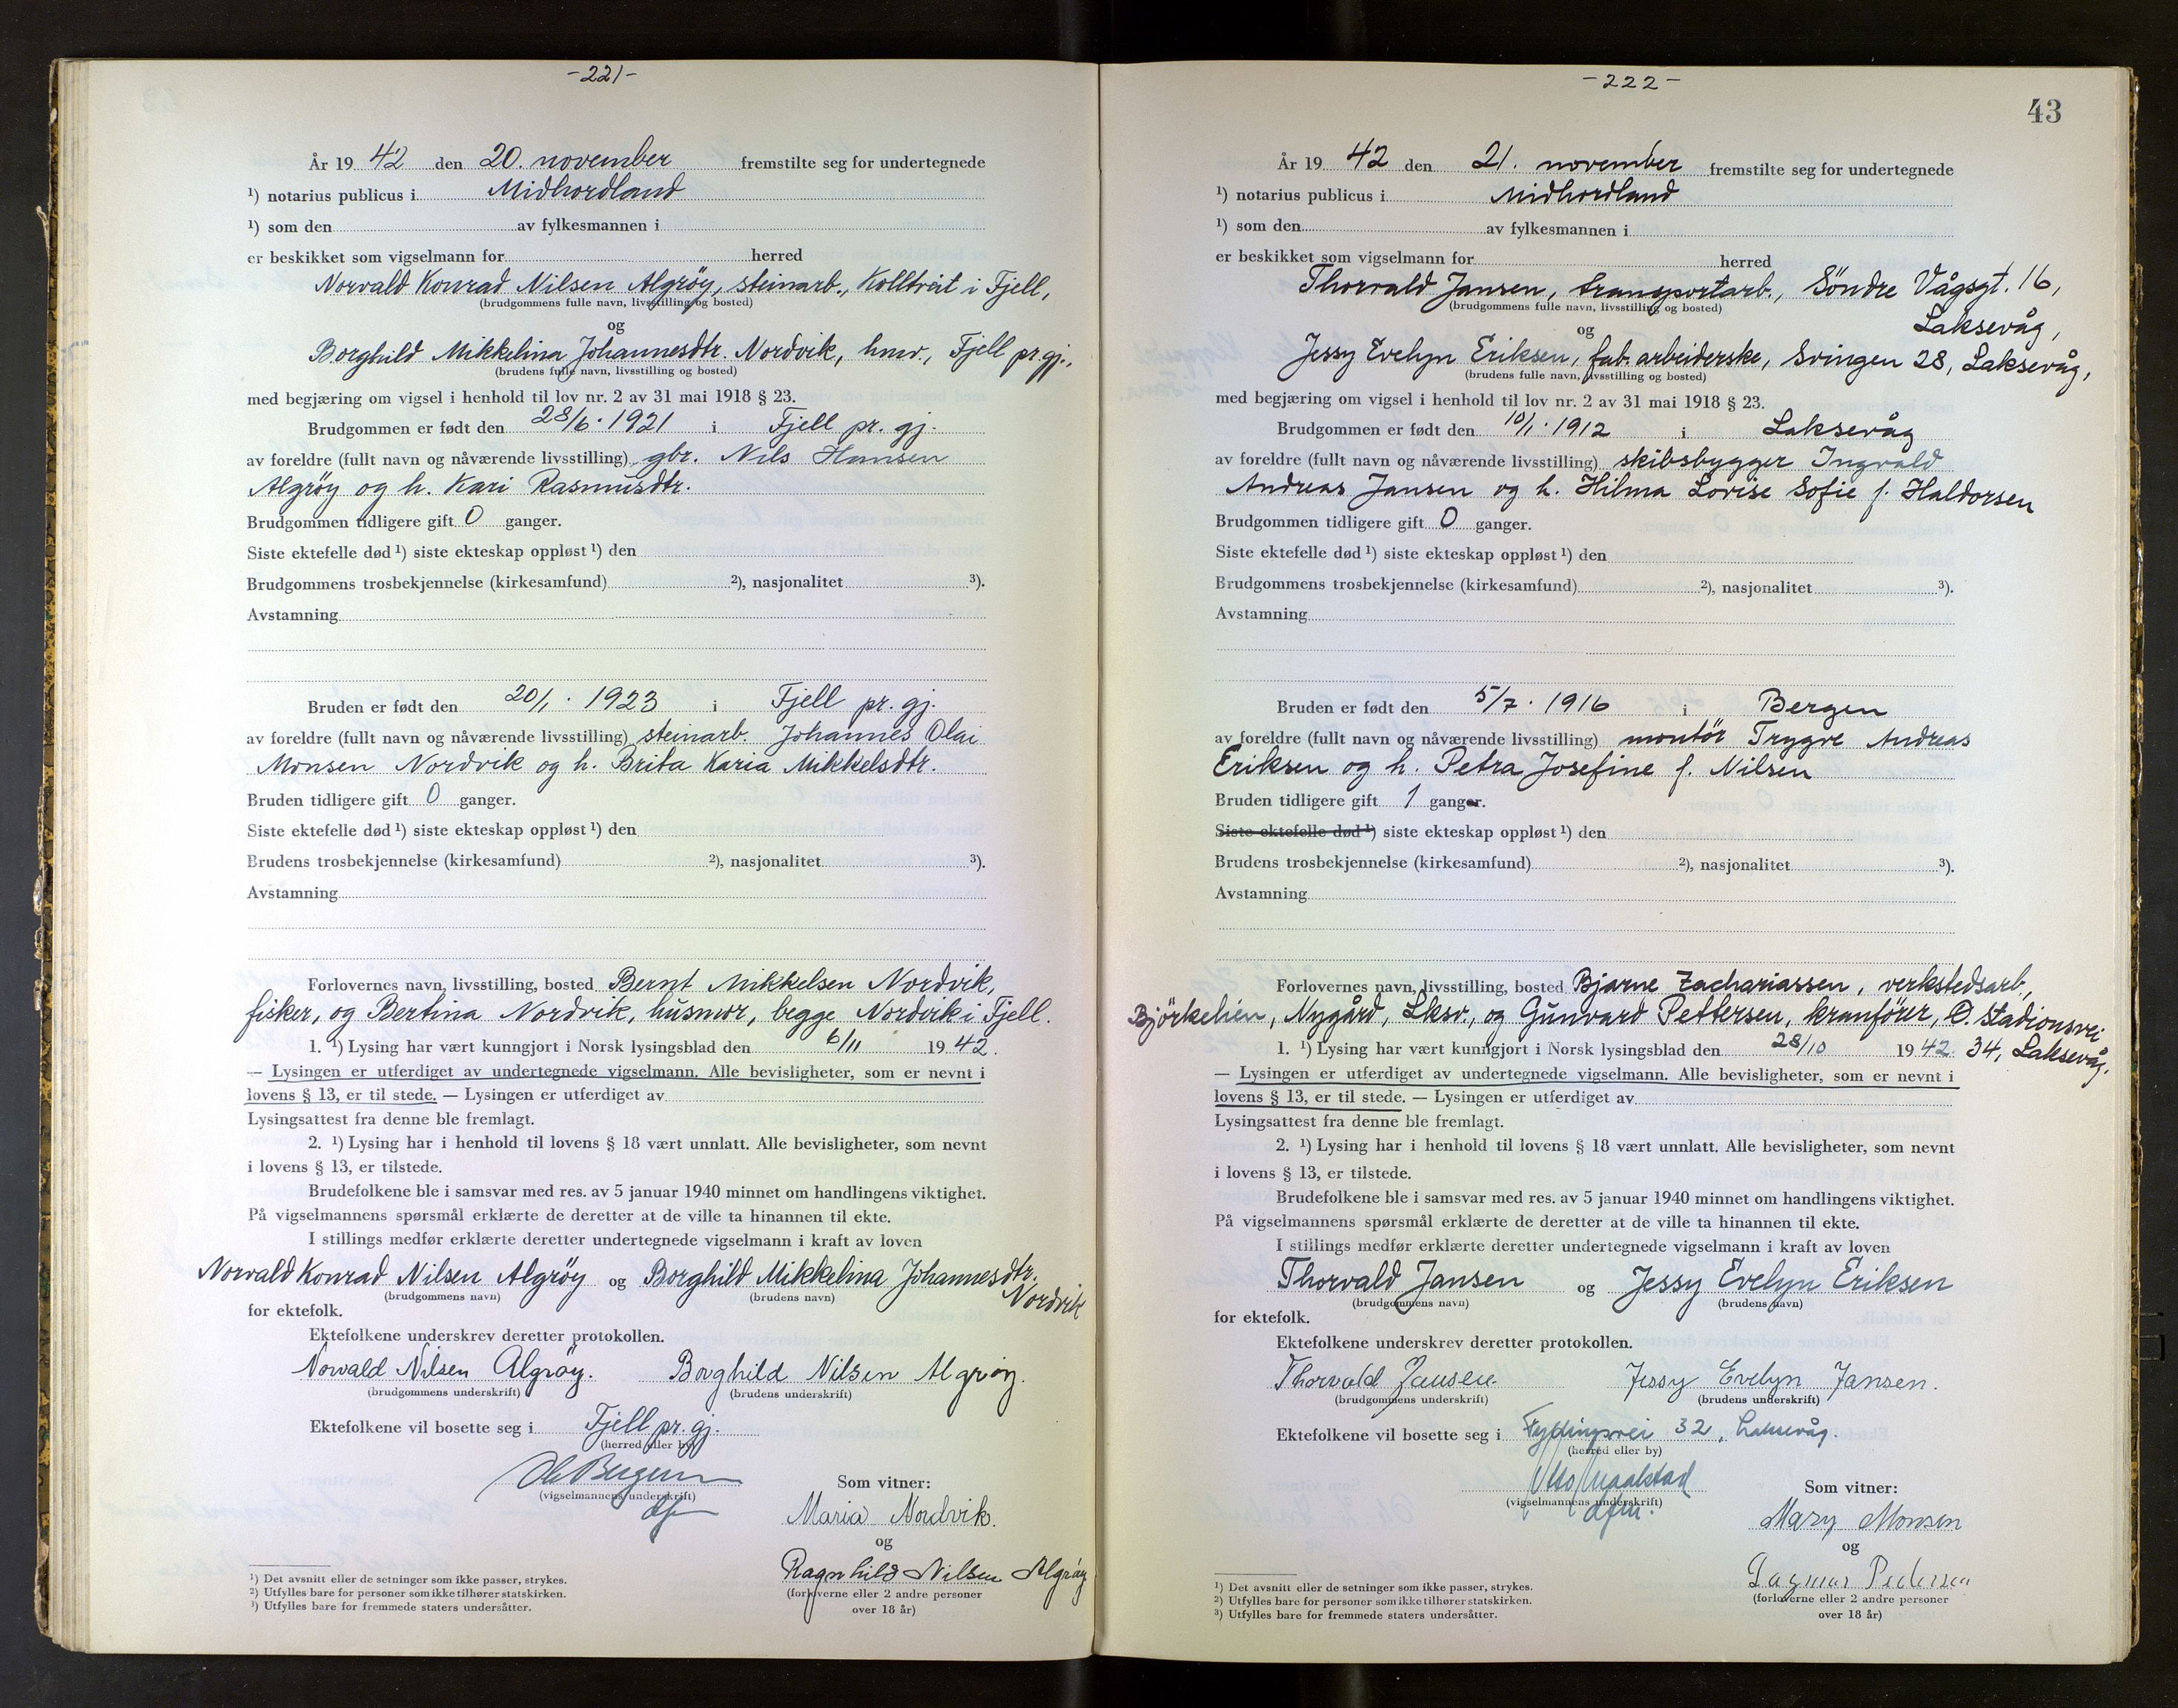 -221-
År 19 42 den 20. november fremstilte seg for undertegnede
¹) notarius publicus i Midhordland
¹) som den av fylkesmannen i
er beskikket som vigselmann for herred
Norvald Konrad Nilsen Algrøy, steinarb., Kolltveit i Fjell,
(brudgommens fulle navn, livsstilling og bosted)
og
Borghild Mikkelina Johannesdtr. Nordvik, hmv., Fjell pr.gj.,
(brudens fulle navn, livsstilling og bosted)
med begjæring om vigsel i henhold til lov nr. 2 av 31 mai 1918 § 23.
Brudgommen er født den 28/6. 1921 i Fjell pr. gj.
av foreldre (fullt navn og nåværende livsstilling) gbr. Nils Hansen
Algrøy og h. Kari Rasmusdtr.
Brudgommen tidligere gift 0 ganger.
Siste ektefelle død ¹) siste ekteskap oppløst ¹) den
Brudgommens trosbekjennelse (kirkesamfund) ²), nasjonalitet ³).
Avstamning
Bruden er født den 20/1. 1923 i Fjell pr. gj.
av foreldre (fullt navn og nåværende livsstilling) steinarb. Johannes Olai
Monsen Nordvik og h. Brita Karia Mikkelsdtr.
Bruden tidligere gift 0 ganger.
Siste ektefelle død ¹) siste ekteskap oppløst ¹) den
Brudens trosbekjennelse (kirkesamfund) ²), nasjonalitet ³).
Avstamning
Forlovernes navn, livsstilling, bosted Bernt Mikkelsen Nordvik,
fisker, og Bertina Nordvik, husmor, begge Nordvik i Fjell.
1. ¹) Lysing har vært kunngjort i Norsk lysingsblad den 6/11 19 42.
— Lysingen er utferdiget av undertegnede vigselmann. Alle bevisligheter, som er nevnt i
lovens § 13, er til stede. — Lysingen er utferdiget av
Lysingsattest fra denne ble fremlagt.
2. ¹) Lysing har i henhold til lovens § 18 vært unnlatt. Alle bevisligheter, som nevnt
i lovens § 13, er tilstede.
Brudefolkene ble i samsvar med res. av 5 januar 1940 minnet om handlingens viktighet.
På vigselmannens spørsmål erklærte de deretter at de ville ta hinannen til ekte.
I stillings medfør erklærte deretter undertegnede vigselmann i kraft av loven
Norvald Konrad Nilsen Algrøy og Borghild Mikkelina Johannesdtr.
Nordvik
(brudgommens navn) (brudens navn)
for ektefolk.
Ektefolkene underskrev deretter protokollen.
Norvald Nilsen Algrøy. Borghild Nilsen Algrøy.
(brudgommens underskrift) (brudens underskrift)
Ektefolkene vil bosette seg i Fjell pr. gj.
(herred eller by)
(vigselmannens underskrift)
Som vitner:
Maria Nordvik.
og
Ragnhild Nilsen Algrøy
(forloverne eller 2 andre personer
over 18 år)
¹) Det avsnitt eller de setninger som ikke passer, strykes.
²) Utfylles bare for personer som ikke tilhører statskirken.
³) Utfylles bare for fremmede staters undersåtter.
-222-
43
År 19 42 den 21. november fremstilte seg for undertegnede
¹) notarius publicus i Midhordland
¹) som den av fylkesmannen i
er beskikket som vigselmann for herred
Thorvald Jansen, transportarb., Söndre Vågsgt. 16,
Laksevåg,
(brudgommens fulle navn, livsstilling og bosted)
og
Jessy Evelyn Eriksen, fab.arbeiderske, Svingen 28, Laksevåg,
(brudens fulle navn, livsstilling og bosted)
med begjæring om vigsel i henhold til lov nr. 2 av 31 mai 1918 § 23.
Brudgommen er født den 10/1. 1912 i Laksevåg
av foreldre (fullt navn og nåværende livsstilling) skibsbygger Ingvald
Andreas Jansen og h. Hilma Lovise Sofie f. Haldorsen
Brudgommen tidligere gift 0 ganger.
Siste ektefelle død ¹) siste ekteskap oppløst ¹) den
Brudgommens trosbekjennelse (kirkesamfund) ²), nasjonalitet ³).
Avstamning
Bruden er født den 5/7. 1916 i Bergen
av foreldre (fullt navn og nåværende livsstilling) montör Trygve Andreas
Eriksen og h. Petra Josefine f. Nilsen
Bruden tidligere gift 1 ganger.
Siste ektefelle død ¹) siste ekteskap oppløst ¹) den
Brudens trosbekjennelse (kirkesamfund) ²), nasjonalitet ³).
Avstamning
Forlovernes navn, livsstilling, bosted Bjarne Zachariassen, verkstedsarb.,
Björkelien, Nygård, Lksv., og Gunvard Pettersen, kranförer, Ø. Stadionsvei
34, Laksevåg.
1. ¹) Lysing har vært kunngjort i Norsk lysingsblad den 28/10 19 42.
— Lysingen er utferdiget av undertegnede vigselmann. Alle bevisligheter, som er nevnt i
lovens § 13, er til stede. — Lysingen er utferdiget av
Lysingsattest fra denne ble fremlagt.
2. ¹) Lysing har i henhold til lovens § 18 vært unnlatt. Alle bevisligheter, som nevnt
i lovens § 13, er tilstede.
Brudefolkene ble i samsvar med res. av 5 januar 1940 minnet om handlingens viktighet.
På vigselmannens spørsmål erklærte de deretter at de ville ta hinannen til ekte.
I stillings medfør erklærte deretter undertegnede vigselmann i kraft av loven
Thorvald Jansen og Jessy Evelyn Eriksen
(brudgommens navn) (brudens navn)
for ektefolk.
Ektefolkene underskrev deretter protokollen.
Thorvald Jansen Jessy Evelyn Jansen.
(brudgommens underskrift) (brudens underskrift)
Ektefolkene vil bosette seg i 32, Laksevåg.
(herred eller by)
(vigselmannens underskrift)
Som vitner:
Mary Monsen
og
Dagmar Pedersen
(forloverne eller 2 andre personer
over 18 år)
¹) Det avsnitt eller de setninger som ikke passer, strykes.
²) Utfylles bare for personer som ikke tilhører statskirken.
³) Utfylles bare for fremmede staters undersåtter.